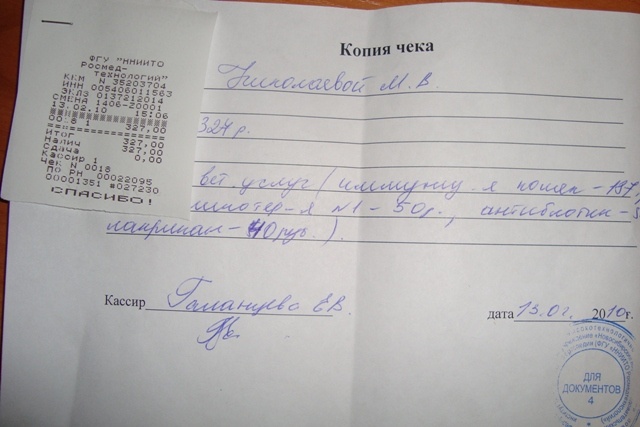 ФГУ "ННИИТО
Росмед-
технологий"
ККМ N 35203704
ИНН 005406011563
ЭКЛЗ 0137212014
СМЕНА 1406-20001
13.02.10 15:06
327,00
ИТОГ
Налич 327,00
Сдача 0,00
Кассир 1
Чек N 0018
ПО РН 00022095
00001351 #027230
СПАСИБО!
Копия чека
Николаевой М.В.
327 р.
вет. услуг (иммуниз. я кошек - 137
N1 - 50р., антибиотик -
40 руб.).
Кассир Е.В.
дата 13.02. 2010г.
ДЛЯ
ДОКУМЕНТОВ
4